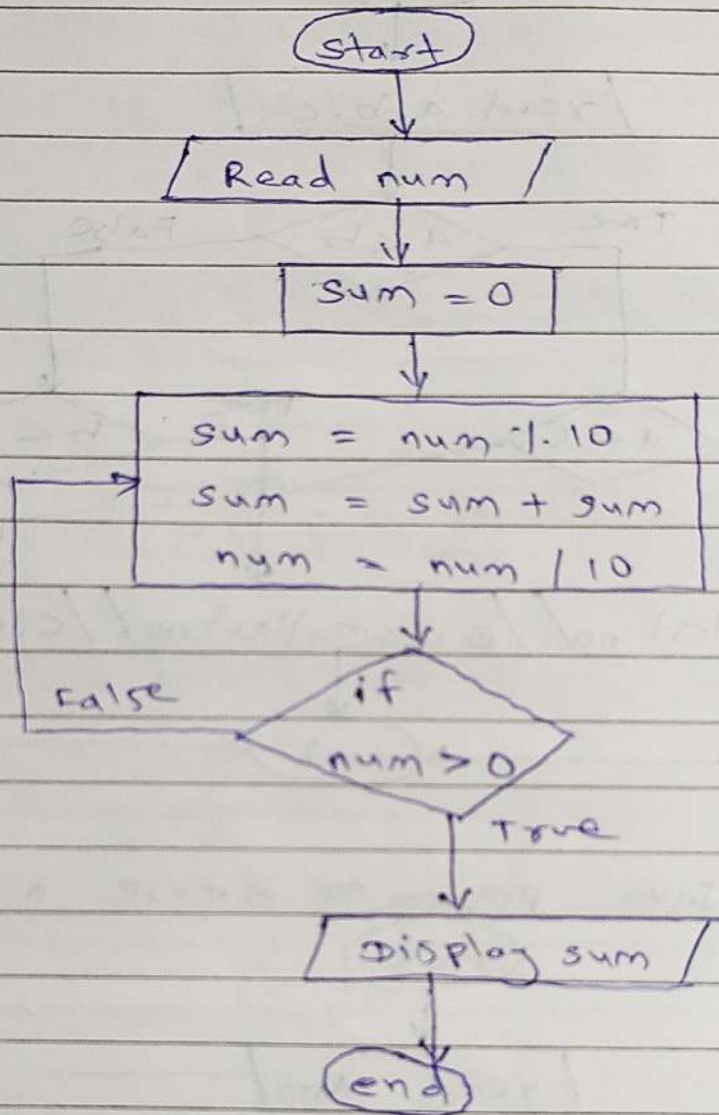 Start
Read num
Sum = 0
sum = num % 10
sum = sum + sum
num = num / 10
False
if
num > 0
True
Display sum
end